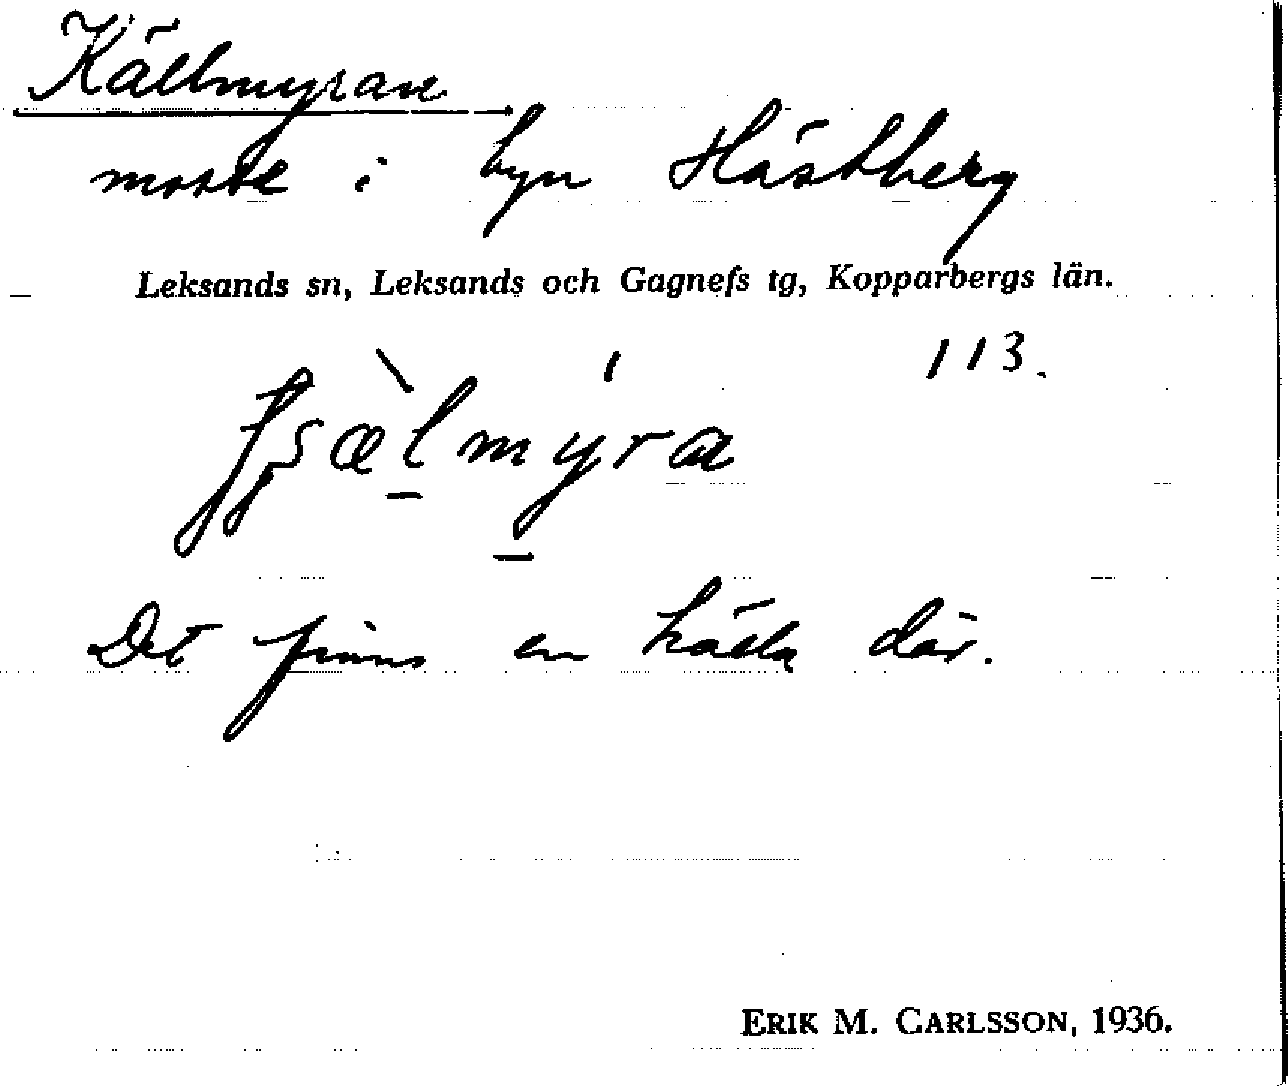 Källmyran
mosse i byn Hästberg
Leksands sn, Leksands och Gagnefs tg, Kopparbergs län.
113.
Det finns en källa där.
ERIK M. CARLSSON, 1936.